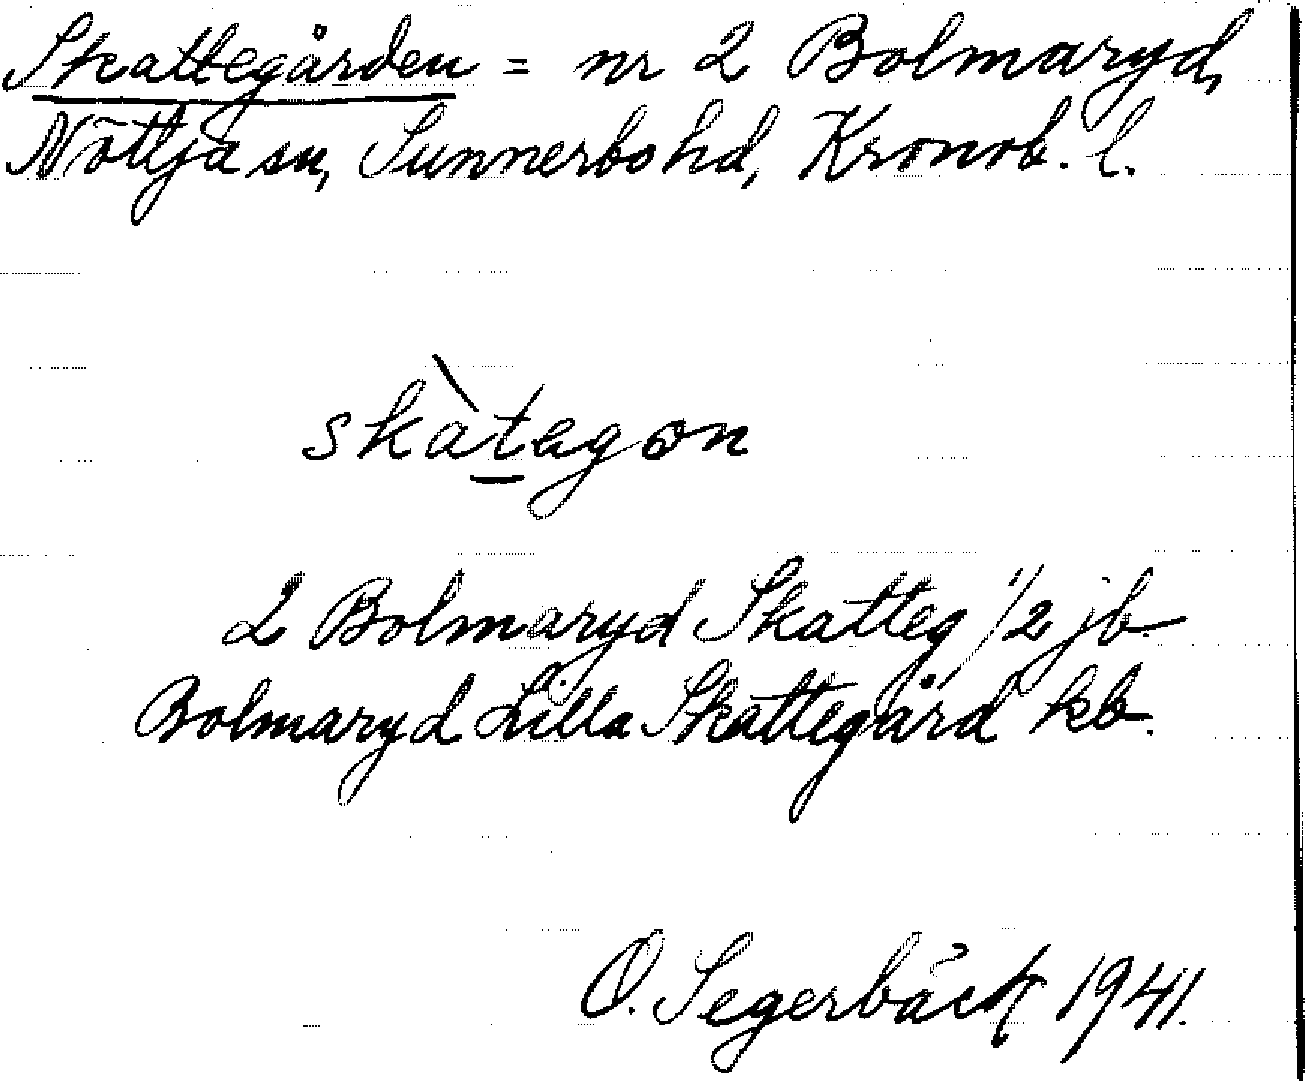 Skattegården = nr 2 Bolmaryd,
Nöttja sn, Sunnerbo hd, Kronob. l.
skàtegon
2 Bolmaryd Skatteg 1/2 jb.
Bolmaryd Lilla Skattegård kb.
O. Segerbäck 1941.